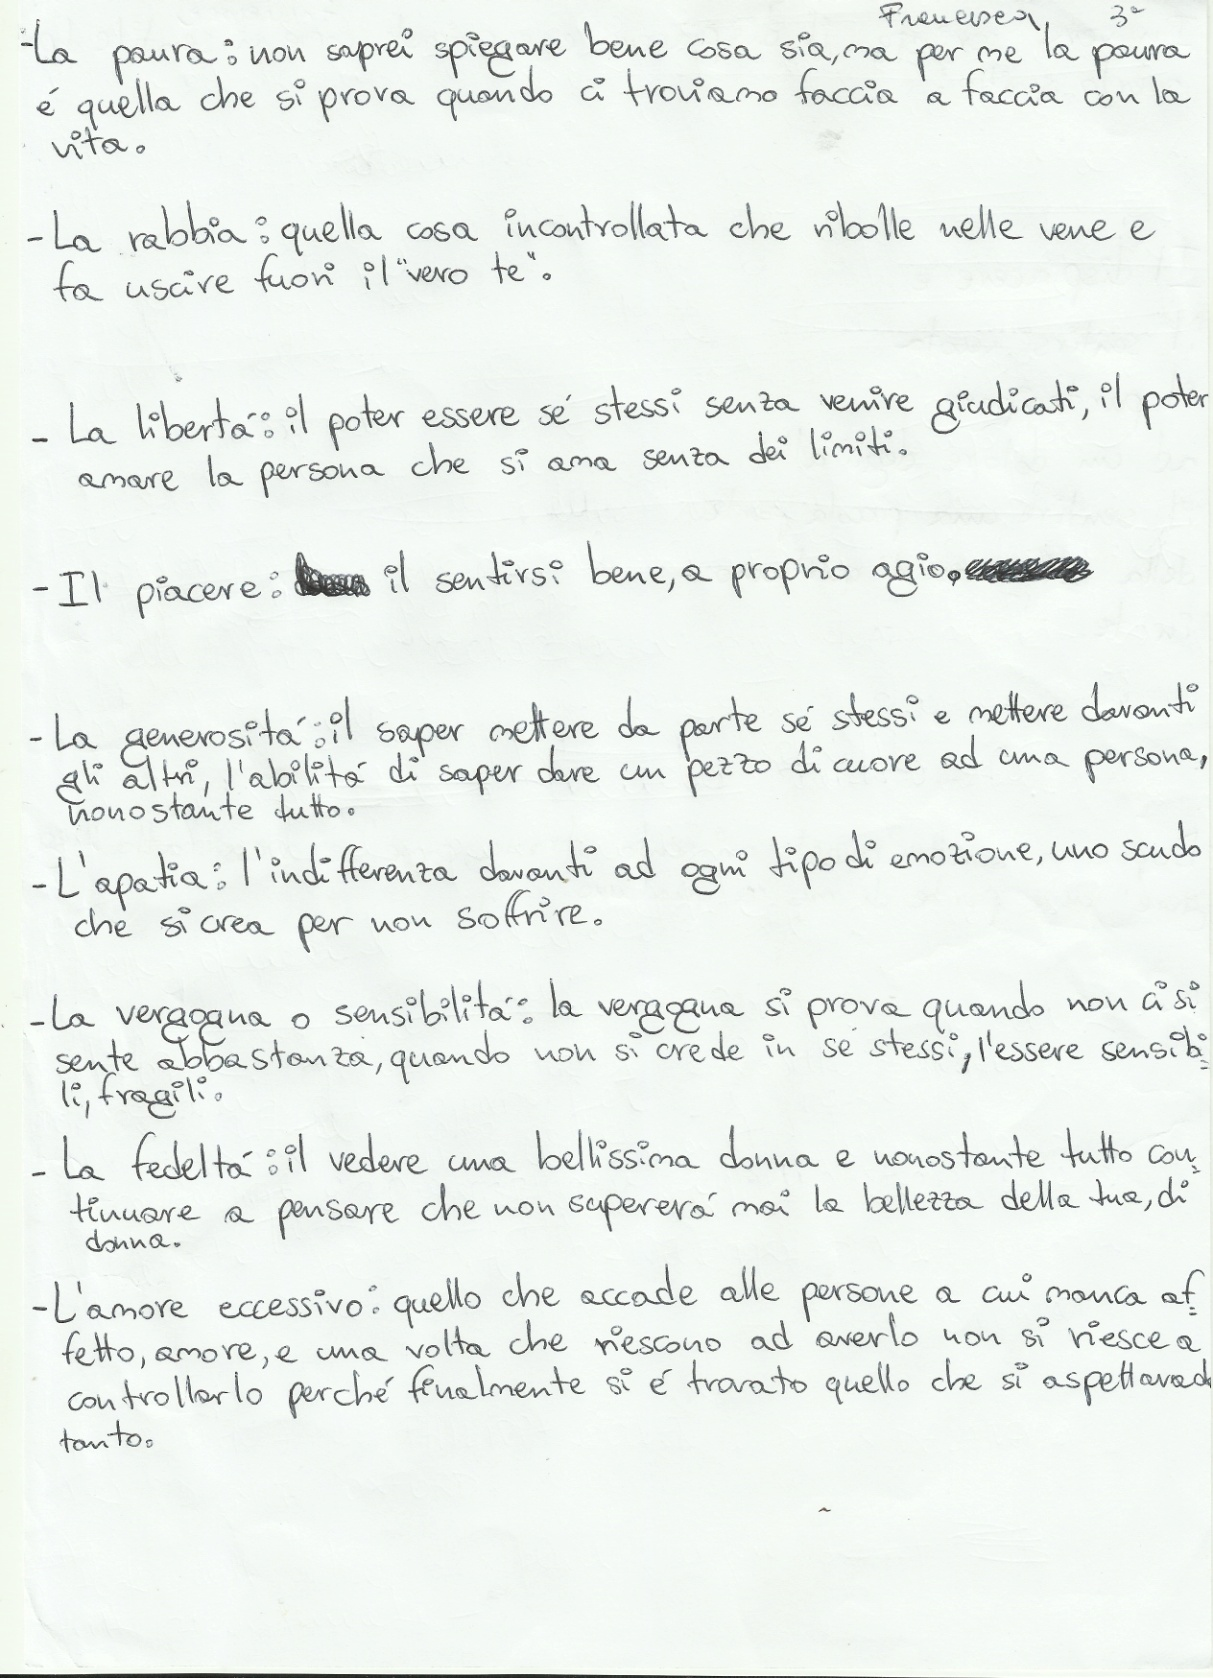 Francesca, 3ª
-La paura: non saprei spiegare bene cosa sia, ma per me la paura
é quella che si prova quando ci troviamo faccia a faccia con la
vita.
- La rabbia: quella cosa incontrollata che ribolle nelle vene e
fa uscire fuori il "vero te".
- La libertá: il poter essere sé stessi senza venire giudicati, il poter
amare la persona che si ama senza dei limiti.
- Il piacere: il sentirsi bene, a proprio agio.
- La generositá: il saper mettere da parte sé stessi e mettere davanti
gli altri, l'abilitá di saper dare un pezzo di cuore ad una persona,
nonostante tutto.
- L'apatia: l'indifferenza davanti ad ogni tipo di emozione, uno scudo
che si crea per non soffrire.
- La vergogna o sensibilitá: la vergogna si prova quando non ci si
sente abbastanza, quando non si crede in se stessi, l'essere sensibi=
li, fragili.
- La fedeltá: il vedere una bellissima donna e nonostante tutto con=
tinuare a pensare che non supererá mai la bellezza della tua, di
donna.
- L'amore eccessivo: quello che accade alle persone a cui manca af=
fetto, amore, e una volta che riescono ad averlo non si riesce a
controllarlo perché finalmente si é trovato quello che si aspettava da
tanto.